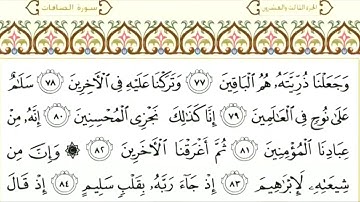 الجزء الثالث والعشرين
سورة الصافات
وَجَعَلْنَا ذُرِّيَّتَهُۥ هُمُ ٱلْبَاقِينَ ٧٧ وَتَرَكْنَا عَلَيْهِ فِى ٱلْـَٔاخِرِينَ ٧٨ سَلَـٰمٌ
عَلَىٰ نُوحٍ فِى ٱلْعَـٰلَمِينَ ٧٩ إِنَّا كَذَٰلِكَ نَجْزِى ٱلْمُحْسِنِينَ ٨٠ إِنَّهُۥ مِنْ
عِبَادِنَا ٱلْمُؤْمِنِينَ ٨١ ثُمَّ أَغْرَقْنَا ٱلْـَٔاخَرِينَ ٨٢ ۞ وَإِنَّ مِن
شِيعَتِهِۦ لَإِبْرَٰهِيمَ ٨٣ إِذْ جَآءَ رَبَّهُۥ بِقَلْبٍ سَلِيمٍ ٨٤ إِذْ قَالَ